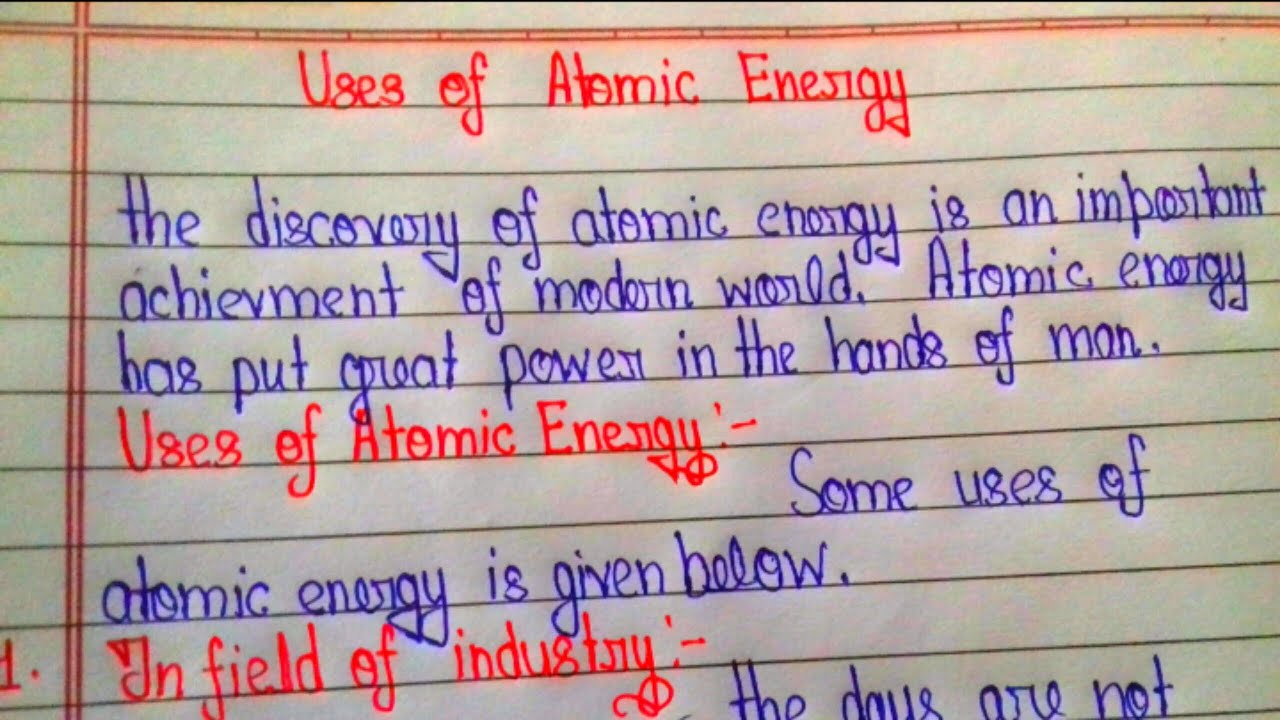 Uses of Atomic Energy
the discovery of atomic energy is an important
achievment of modern world. Atomic energy
has put great power in the hands of man.
Uses of Atomic Energy:-
Some uses of
atomic energy is given below.
1. In field of industry:-
the days are not